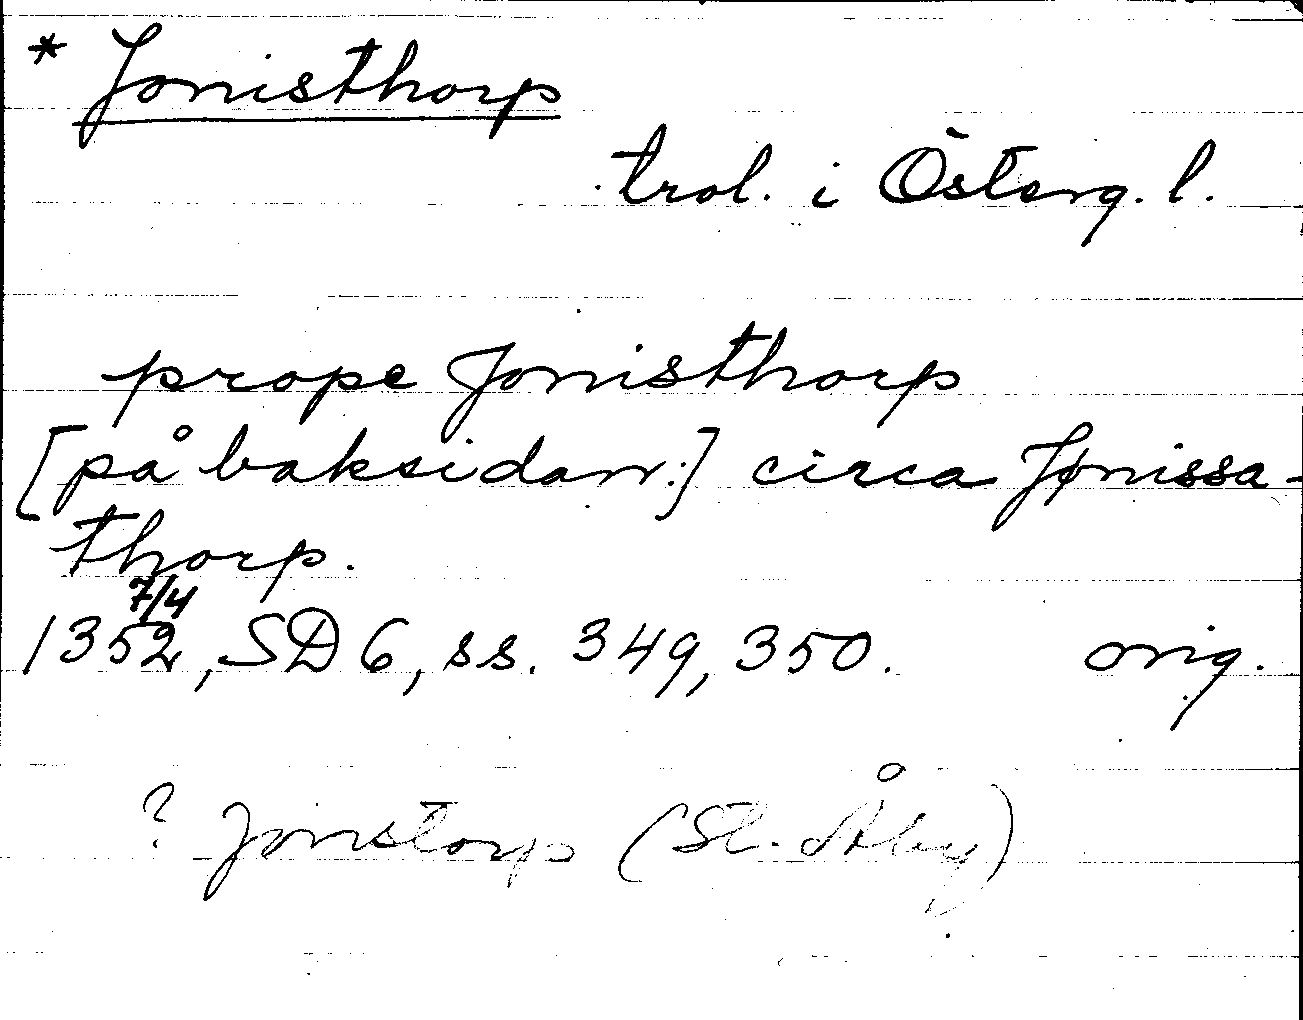 * Jonisthorp
trol. i Österg. l.
prope Jonisthorp
[på baksidan:] circa Jønissa-
thorp.
1352 7/4, SD 6, ss. 349, 350. orig.
? Jonstorp (St. Åby)